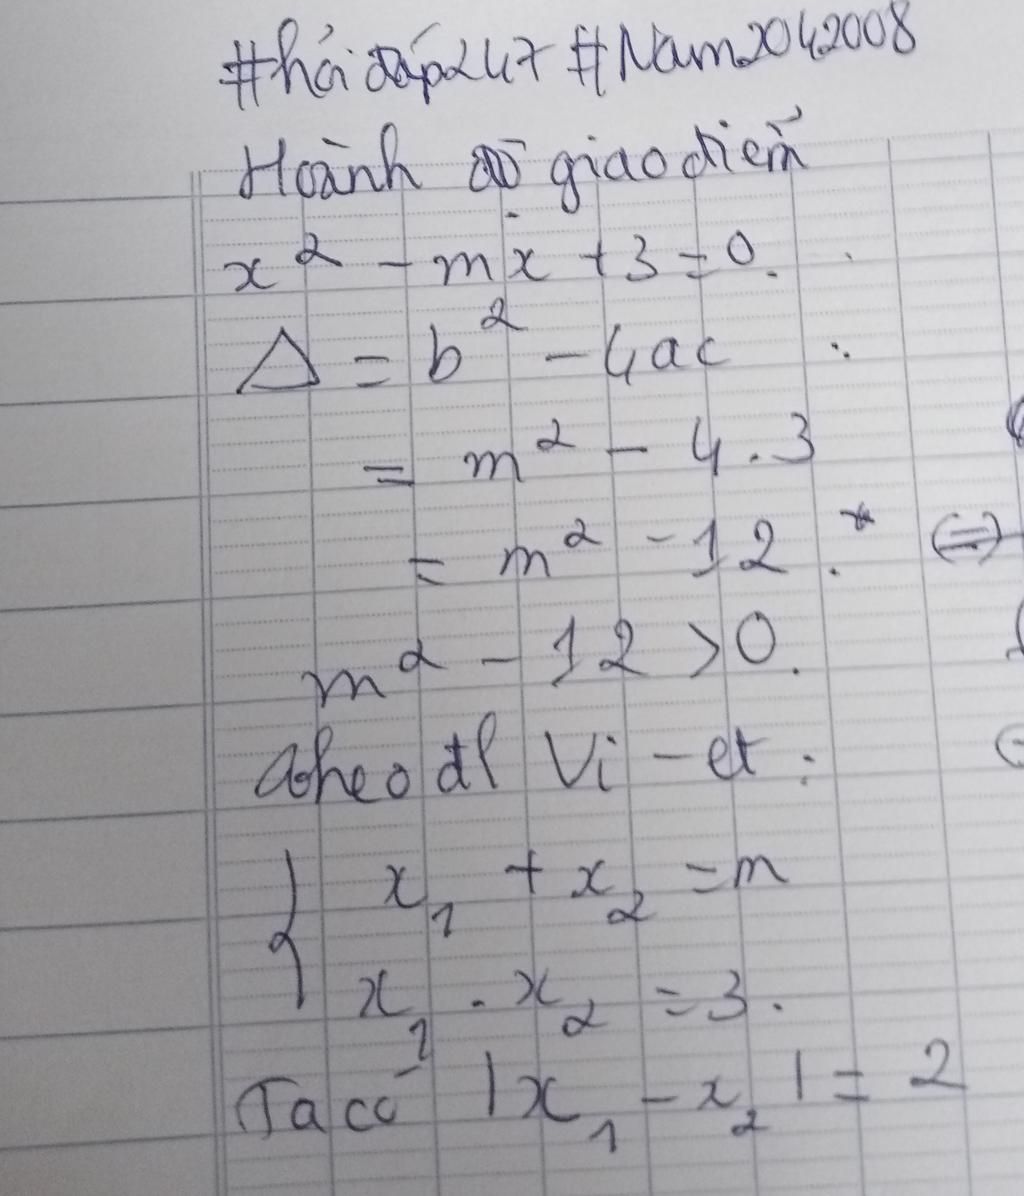 #hỏi đáp247 #Nam2042008
Hoành độ giao điểm
x² - mx + 3 = 0.
Δ = b² - 4ac
= m² - 4.3
= m² - 12. * ⇔
m² - 12 > 0.
Theo đl Vi-et:
{ x₁ + x₂ = m
x₁ . x₂ = 3.
Ta có |x₁ - x₂| = 2